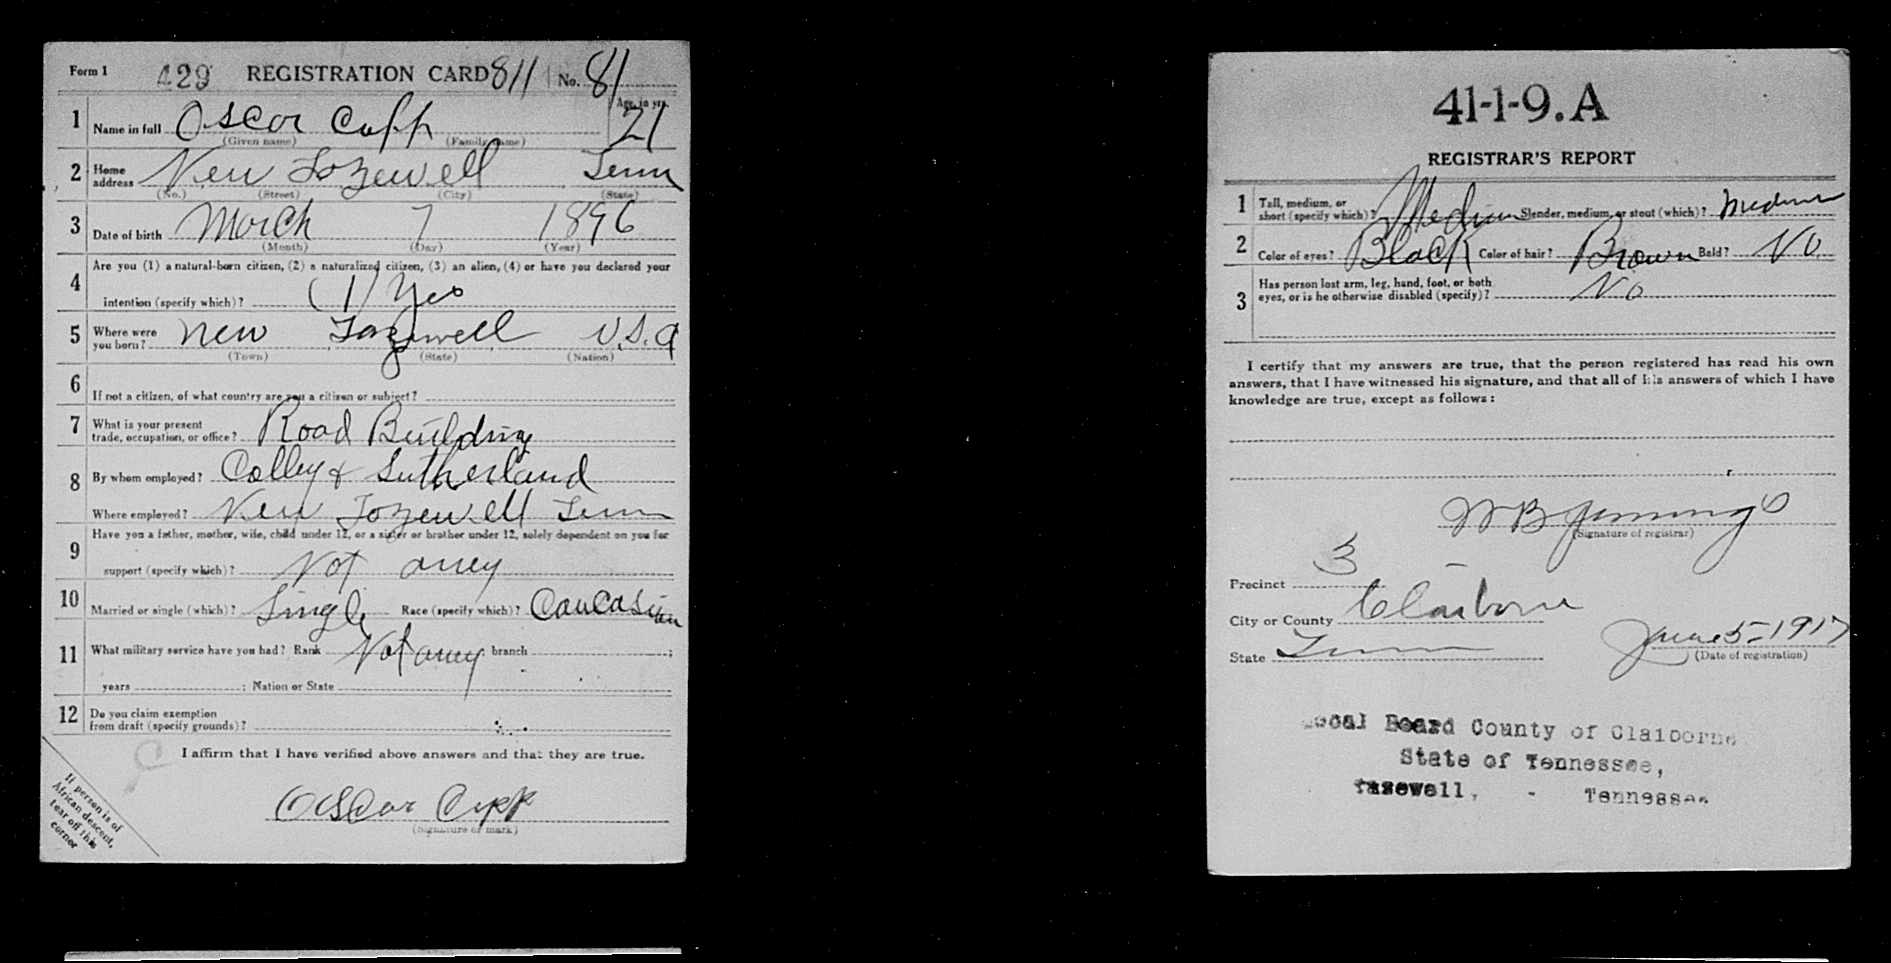 Form 1 429 REGISTRATION CARD 811 No. 81
1 Name in full Oscar Cupp Age, in yrs. 21
(Given name) (Family name)
2 Home address New Tazewell Tenn
(No.) (Street) (City) (State)
3 Date of birth March 7 1896
(Month) (Day) (Year)
4 Are you (1) a natural-born citizen, (2) a naturalized citizen, (3) an alien, (4) or have you declared your
intention (specify which)? (1) Yes
5 Where were you born? New Tazewell U.S.A
(Town) (State) (Nation)
6 If not a citizen, of what country are you a citizen or subject?
7 What is your present trade, occupation, or office? Road Building
8 By whom employed? Colley & Sutherland
Where employed? New Tazewell Tenn
9 Have you a father, mother, wife, child under 12, or a sister or brother under 12, solely dependent on you for
support (specify which)? Not aney
10 Married or single (which)? Single Race (specify which)? Caucasian
11 What military service have you had? Rank Not aney branch ;
years ; Nation or State
12 Do you claim exemption from draft (specify grounds)?
I affirm that I have verified above answers and that they are true.
Oscar Cupp
(Signature or mark)
If person is of
African descent,
tear off this
corner
41-1-9.A
REGISTRAR'S REPORT
1 Tall, medium, or short (specify which)? Medium Slender, medium, or stout (which)? Medium
2 Color of eyes? Black Color of hair? Brown Bald? No
3 Has person lost arm, leg, hand, foot, or both
eyes, or is he otherwise disabled (specify)? No
I certify that my answers are true, that the person registered has read his own
answers, that I have witnessed his signature, and that all of his answers of which I have
knowledge are true, except as follows:
W B Jennings
(Signature of registrar)
Precinct 3
City or County Claiborne
State Tenn June 5-1917
(Date of registration)
Local Board County of Claiborne
State of Tennessee,
Tazewell, - Tennessee